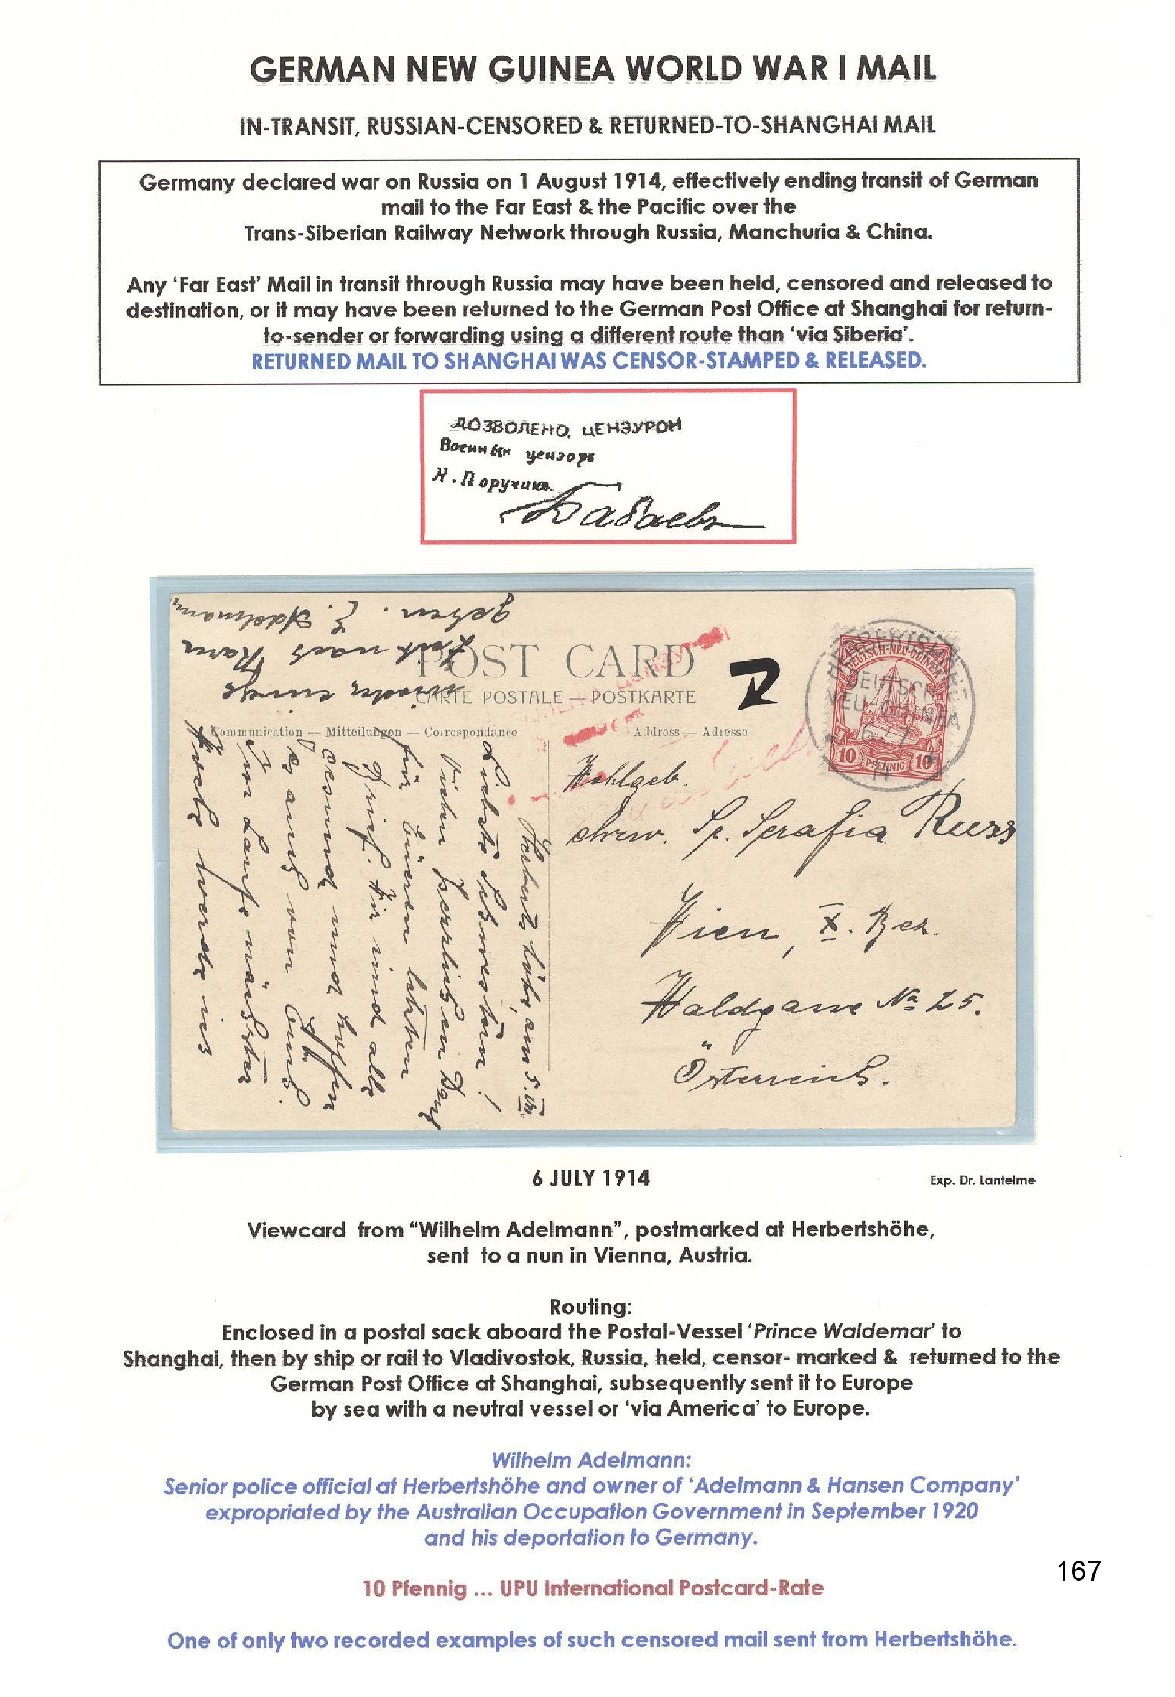 GERMAN NEW GUINEA WORLD WAR I MAIL
IN-TRANSIT, RUSSIAN-CENSORED & RETURNED-TO-SHANGHAI MAIL
Germany declared war on Russia on 1 August 1914, effectively ending transit of German
mail to the Far East & the Pacific over the
Trans-Siberian Railway Network through Russia, Manchuria & China.
Any ‘Far East’ Mail in transit through Russia may have been held, censored and released to
destination, or it may have been returned to the German Post Office at Shanghai for return-
to-sender or forwarding using a different route than ‘via Siberia’.
RETURNED MAIL TO SHANGHAI WAS CENSOR-STAMPED & RELEASED.
ДОЗВОЛЕНО, ЦЕНЗУРОЙ
Военный цензоръ
Н. Поручикъ
Бабаевъ
gehen. E. Adelmann
Zeit nach Rom
wieder einige
POST CARD
CARTE POSTALE — POSTKARTE
Communication — Mitteilungen — Correspondance
Address — Adresse
HERBERTSHÖHE
DEUTSCH-
NEU-GUINEA
6 7
14
DEUTSCH-NEU-GUINEA
10 PFENNIG 10
Herbertshöhe, am 5. VII.
Liebste Schwestern!
Vielen herzlichen Dank
für Eueren letzten
Brief. Wir sind alle
gesund und hoffen
es auch von Euch.
Im Laufe nächster
Woche werde ich
Wohlgeb.
ehrw. Sr. Serafia Russ
Wien, X. Bez.
Waldgasse No 25.
Österreich.
6 JULY 1914
Exp. Dr. Lantelme
Viewcard from “Wilhelm Adelmann”, postmarked at Herbertshöhe,
sent to a nun in Vienna, Austria.
Routing:
Enclosed in a postal sack aboard the Postal-Vessel ‘Prince Waldemar’ to
Shanghai, then by ship or rail to Vladivostok, Russia, held, censor- marked & returned to the
German Post Office at Shanghai, subsequently sent it to Europe
by sea with a neutral vessel or ‘via America’ to Europe.
Wilhelm Adelmann:
Senior police official at Herbertshöhe and owner of ‘Adelmann & Hansen Company’
expropriated by the Australian Occupation Government in September 1920
and his deportation to Germany.
167
10 Pfennig ... UPU International Postcard-Rate
One of only two recorded examples of such censored mail sent from Herbertshöhe.